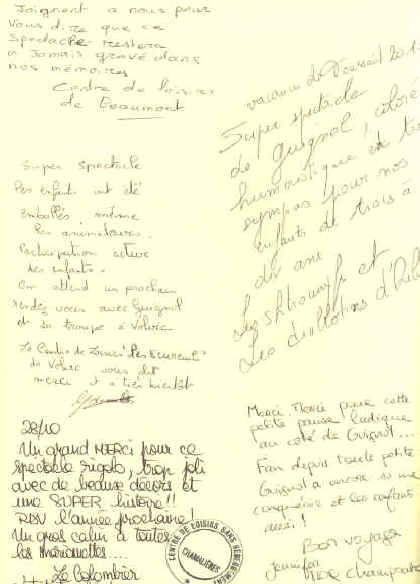 Joignent a nous pour
vous dire que ce
Spectacle restera
a Jamais gravé dans
nos mémoires
Centre de loisirs
de Beaumont
vacances de 201
Super spectacle
de guignol, coloré
humoristique et
sympas pour nos
enfants de trois à
dix ans
Les shtroumpfs et
Les diablotins d'
Super Spectacle
Les enfants ont été
emballés, même
les animateurs.
Participation active
des enfants.
On attend un prochain
rendez vous avec Guignol
et sa troupe à Volvic
Le Centre de Loisirs "Les Ecureuils"
de Volvic vous dit
merci et à très bientôt
28/10
Un grand MERCI pour ce
spectacle rigolo, trop joli
avec de beaux décors et
une SUPER histoire!!
RDV l'année prochaine!
Un gros calin à toutes
les marionnettes...
Le Colombier
CENTRE DE LOISIRS SANS HÉBERGEMENT
CHAMALIÈRES
Merci, Merci pour cette
petite pause ludique
au côté de Guignol...
Fan depuis toute petite
Guignol a encore su me
conquérir et les enfants
aussi!
Bon voyage
Jennifer